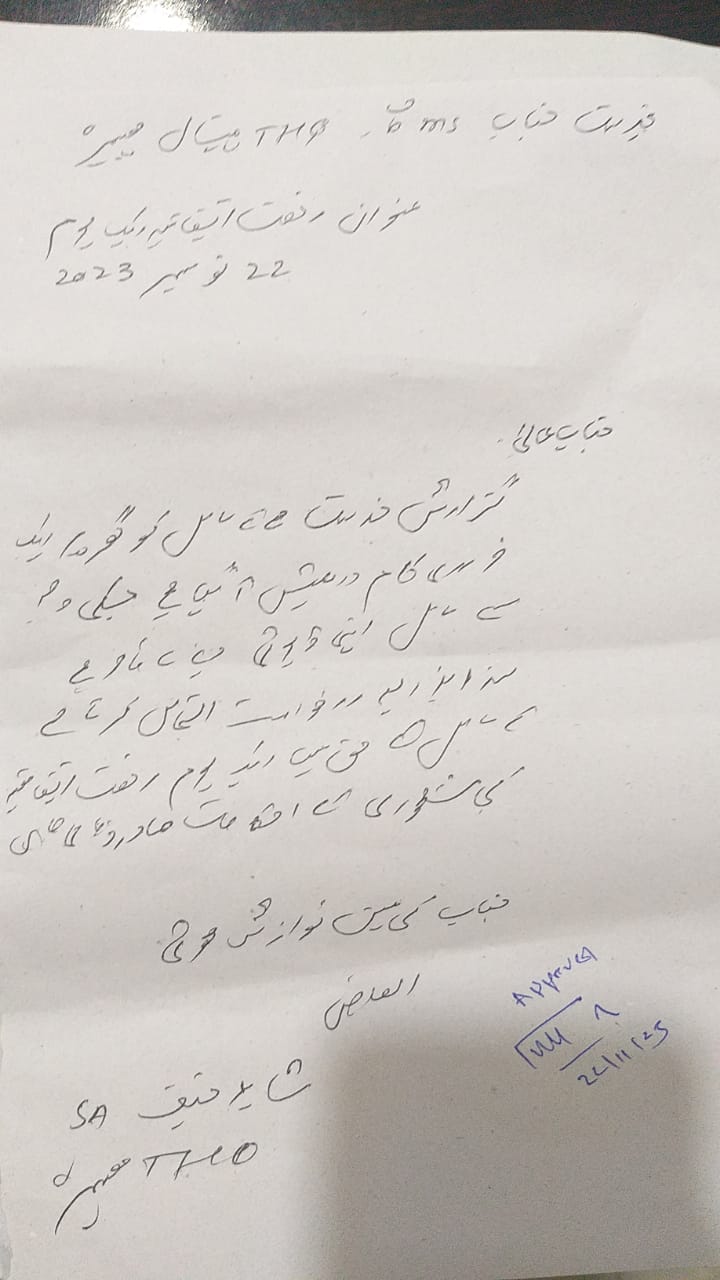 بخدمت جناب ms صاحب THQ ہسپتال
عنوان رخصت اتفاقیہ ایک یوم
22 نومبر 2023
جناب عالی
گزارش خدمت ہے کہ سائل کو گھریلو ایک
ضروری کام درپیش آ گیا ہے جسکی وجہ
سے سائل اپنی ڈیوٹی
لہذا بذریعہ درخواست التماس کرتا ہے
کہ سائل کے حق میں ایک یوم رخصت اتفاقیہ
کی منظوری کے احکامات صادر فرمائے جائیں
جناب کی عین نوازش ہوگی
العارض
Approved
22/11/23
شاہد SA
THQ